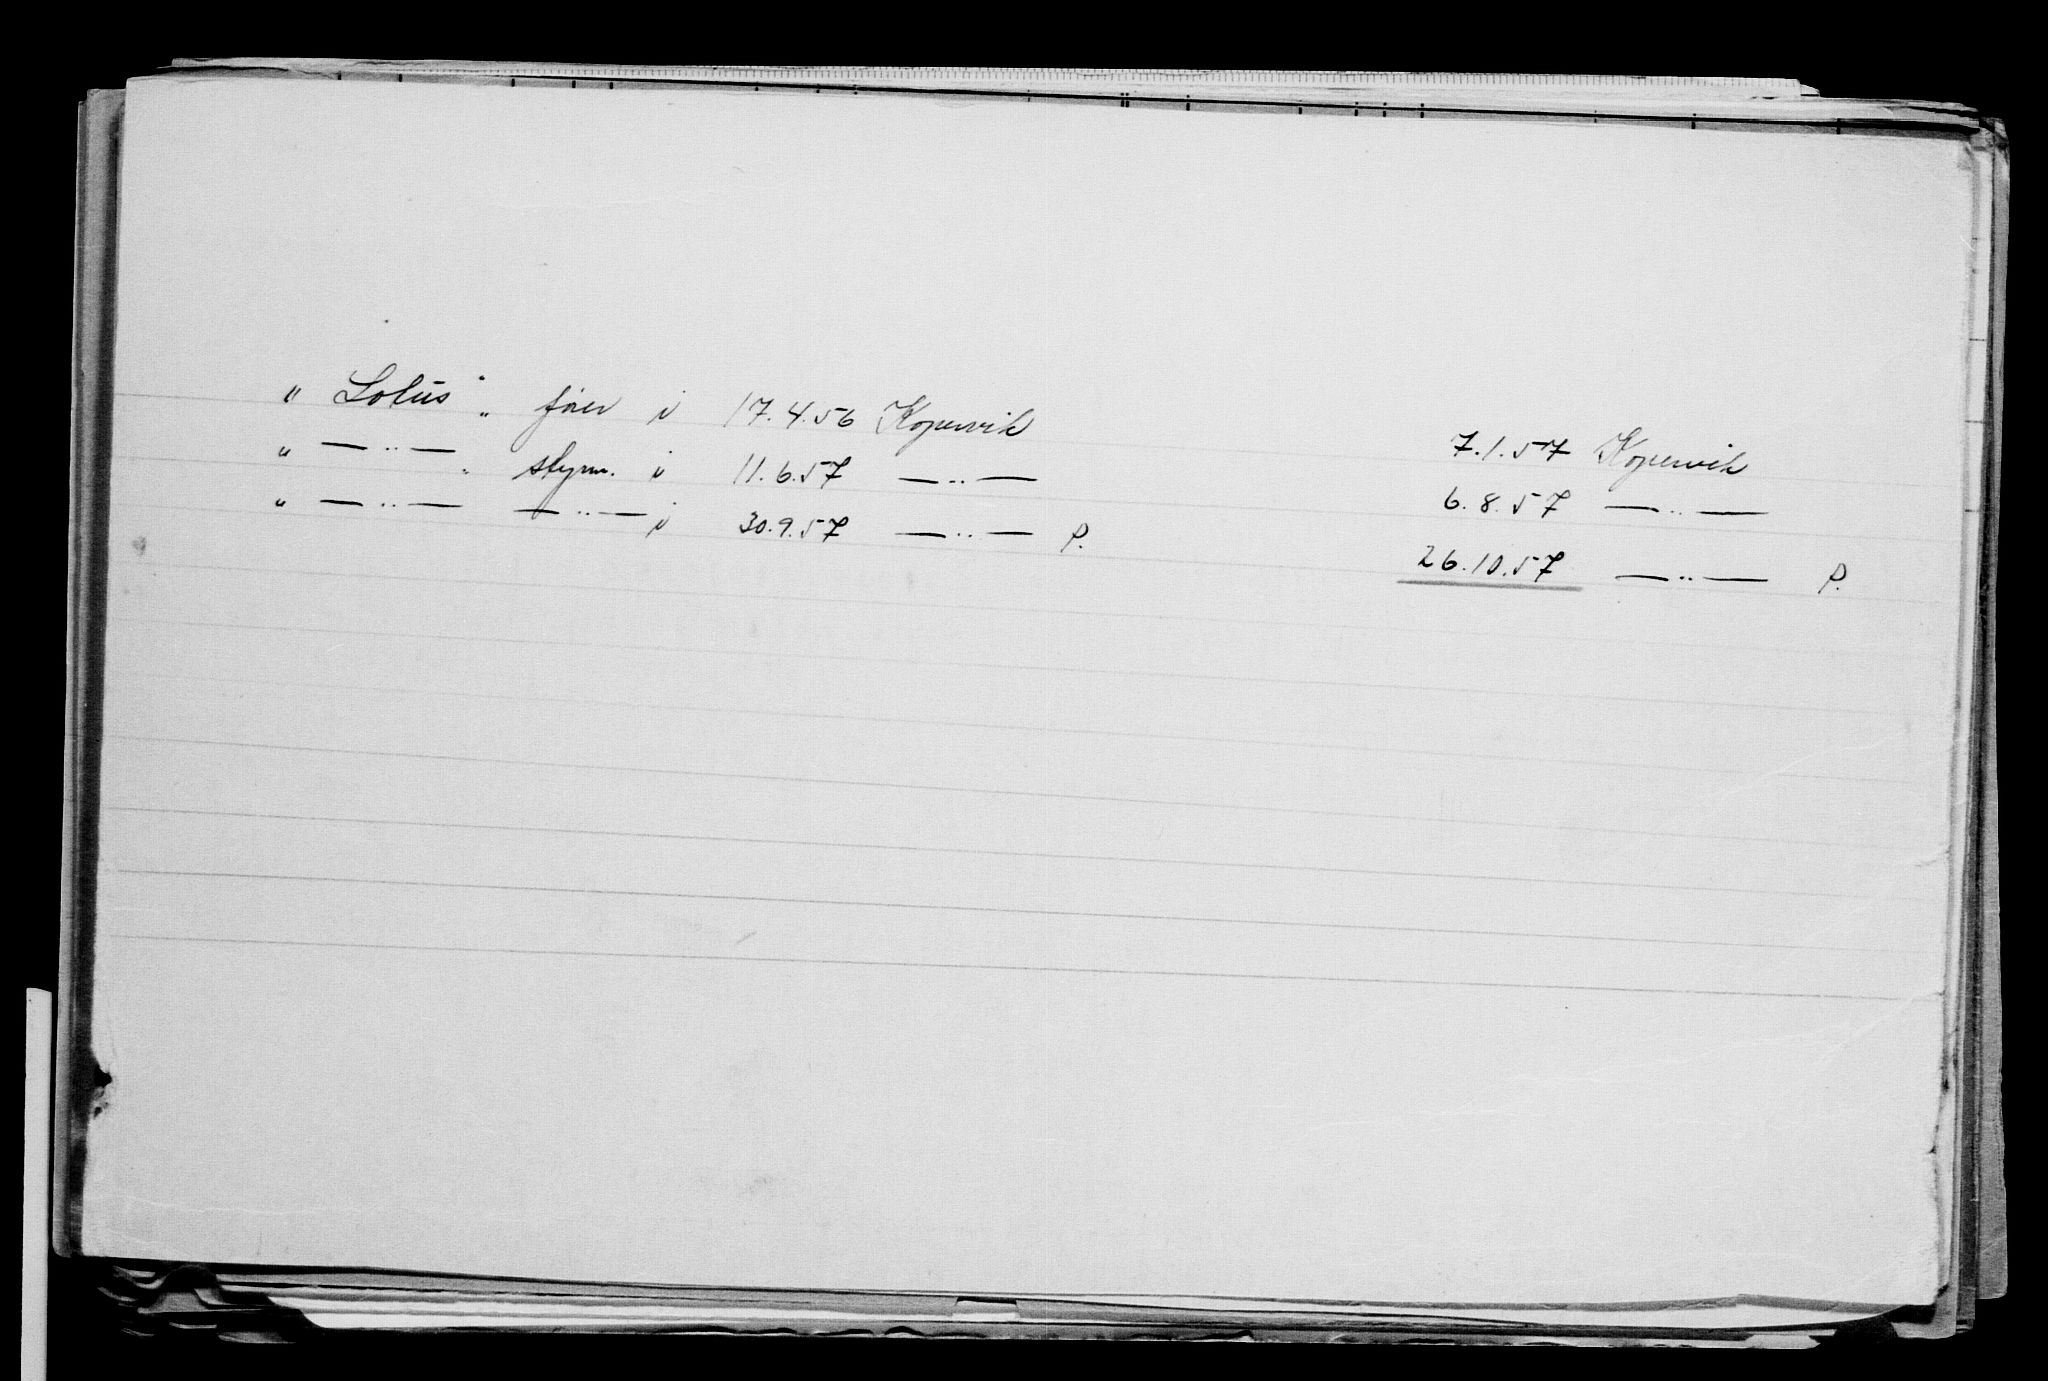 " Lotus " fører i 17.4.56 Kopervik 7.1.57 Kopervik
" — " — " styrm. i 11.6.57 — " — 6.8.57 — " —
" — " — — " — i 30.9.57 — " — P. 26.10.57 — " — P.